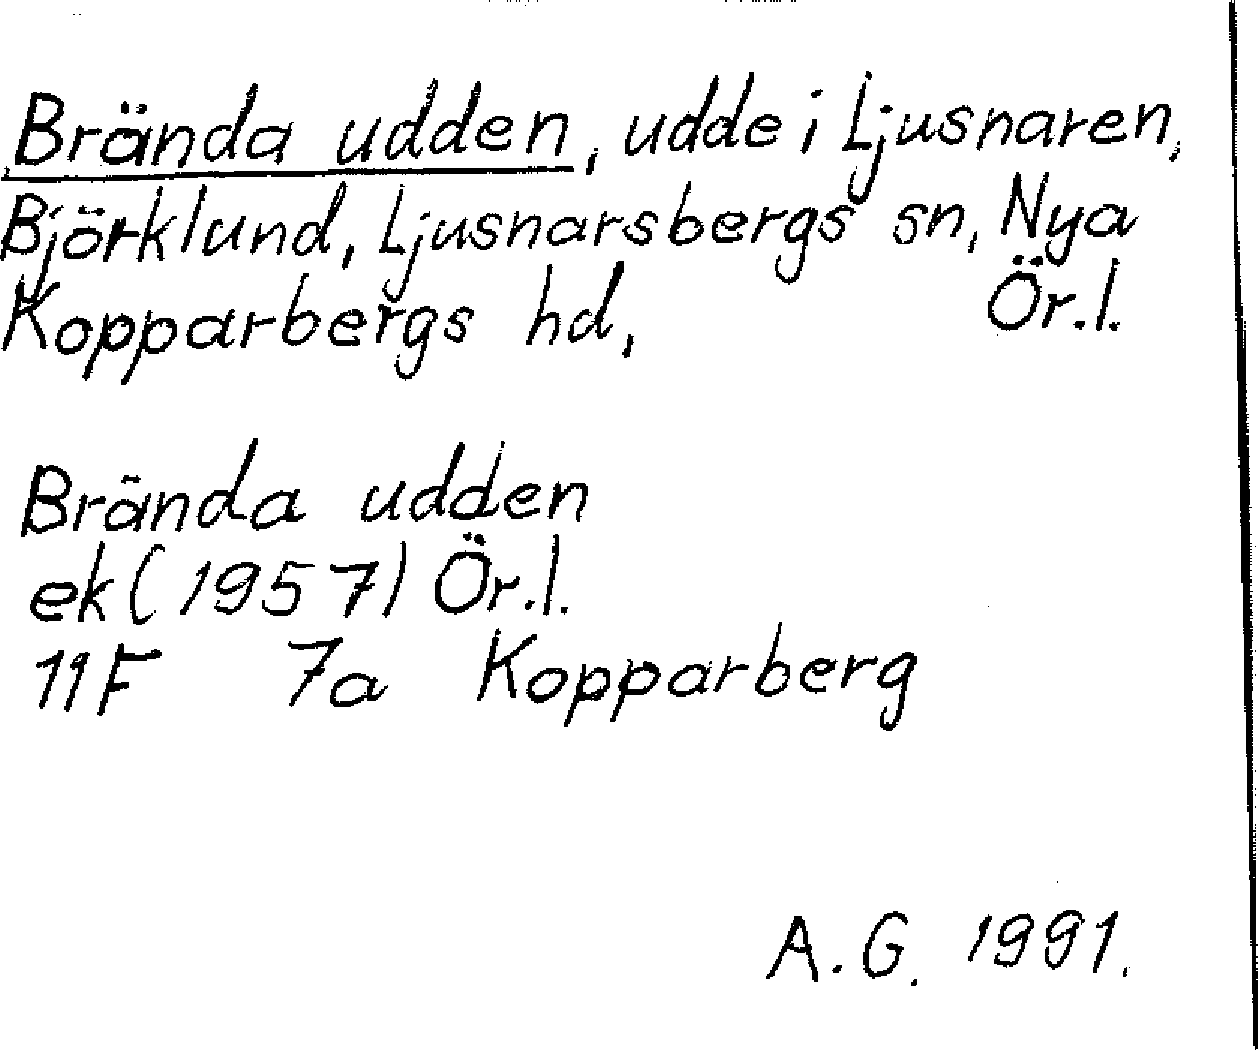 Brända udden, udde i Ljusnaren,
Björklund, Ljusnarsbergs sn, Nya
Kopparbergs hd, Ör.l.
Brända udden
ek (1957) Ör.l.
11F 7a Kopparberg
A.G. 1991.